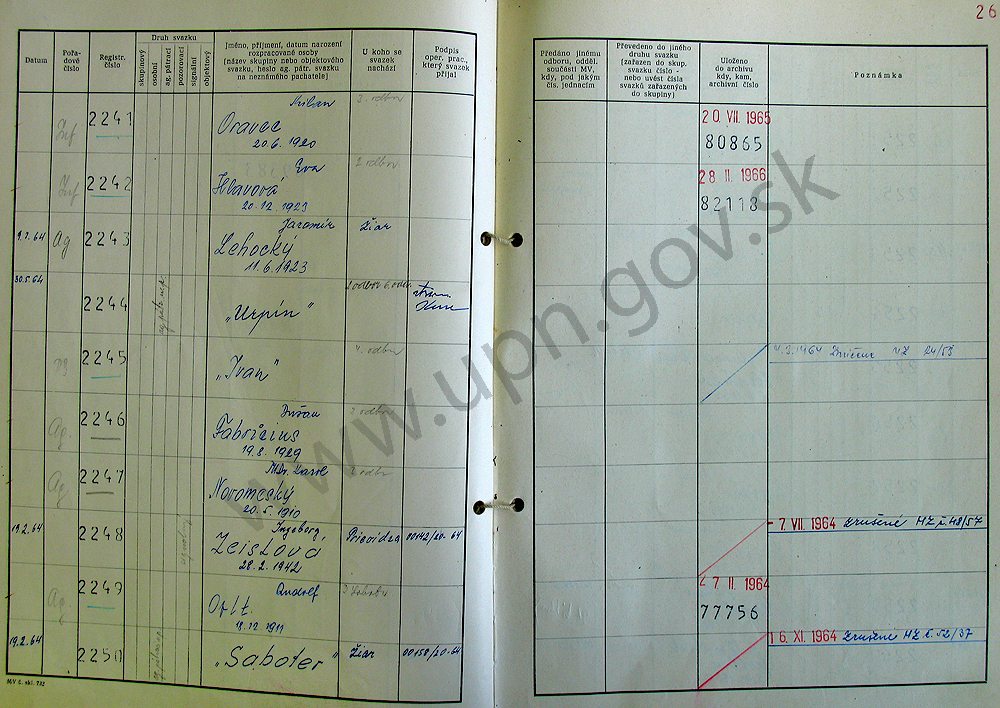 26
Datum
Pořa-
dové
číslo
Registr.
číslo
Druh svazku
skupinový
osobní
ag. pátrací
pozorovací
signální
objektový
Jméno, příjmení, datum narození
rozpracované osoby
(název skupiny nebo objektového
svazku, heslo ag. pátr. svazku
na neznámého pachatele)
U koho se
svazek
nachází
Podpis
oper. prac.,
který svazek
přijal
Předáno jinému
odboru, odděl.
součásti MV,
kdy, pod jakým
čís. jednacím
Převedeno do jiného
druhu svazku
(zařazen do skup.
svazku číslo -
nebo uvést čísla
svazků zařazených
do skupiny)
Uloženo
do archivu
kdy, kam,
archivní číslo
Poznámka
Inf 2241 Milan 3. odbor
Oravec
20.6.1920
20 VII. 1965
80865
Inf 2242 Eva 2 odbor
Hlavová
20.12.1923
28 II. 1966
82118
9.1.64 Ag 2243 Jaromír Žiar
Lehocký
11.6.1923
30.5.64 2244 „Urpín" 1 odbor 6. odd.
2245 „Ivan" 4. odbor
4.3.1964 Zničené NZ 24/53
Ag. 2246 Dušan 2 odbor
Fabricius
19.8.1929
Ag. 2247 MDr. Karol 2 odbor
Novomeský
20.5.1910
19.2.64 2248 Ingeborg Prievidza 00142/20-64
Zeislová
28.2.1942
7. VII. 1964 Zrušené MZ č. 48/57
Ag. 2249 Rudolf
Ortt.
18.12.1911
27. II. 1964
77756
19.2.64 2250 „Saboter" Žiar 00158/20-64
16. XI. 1964 Zrušené MZ č. 52/37
MV č. skl. 732
www.upn.gov.sk